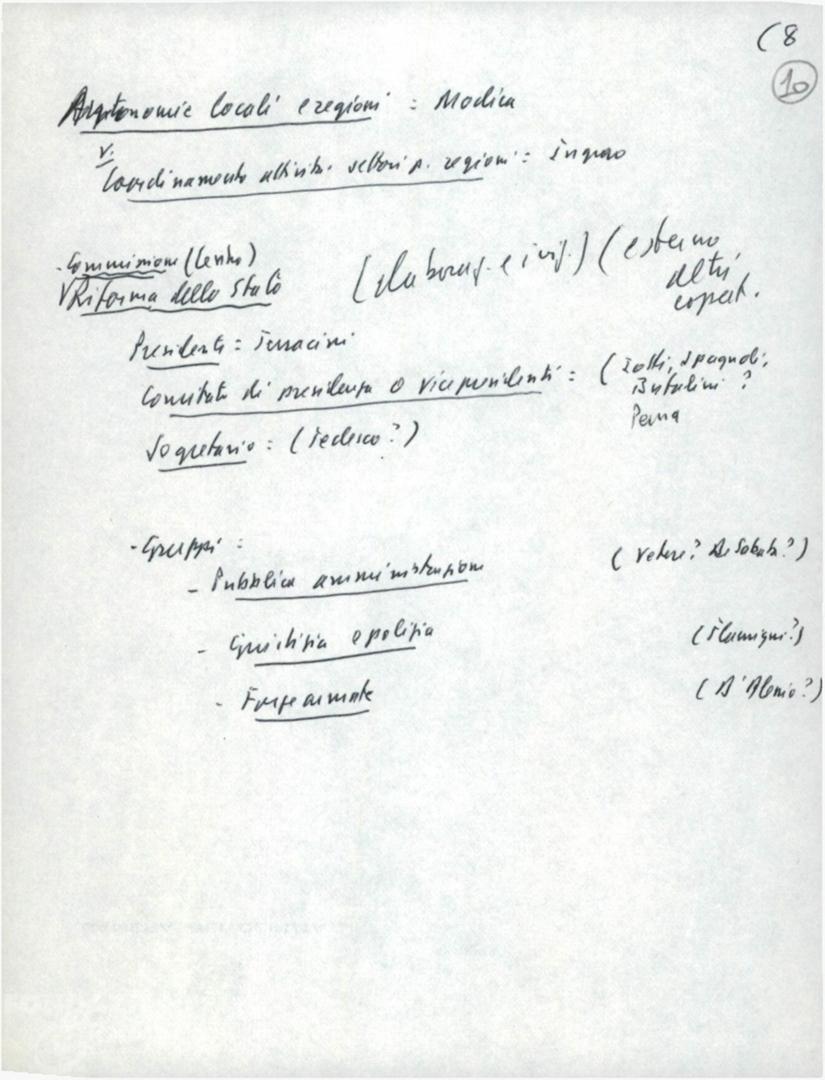 (8
10
Autonomie locali e regioni : Modica
V.
Coordinamento attività settori p. regioni : Ingrao
- Commissione (Centro)
V Riforma dello Stato
(elaboraz. e iniz.) (esterno
altri
Presidente = Terracini
Comitato di presidenza o vicepresidenti = (Iotti, Spagnoli,
Bufalini ?
Perna
Segretario : (Tedesco?)
- Gruppi :
- Pubblica amministrazione (Vetere? De Sabata?)
- Giustizia e polizia (Flamigni?)
- Forze armate (D'Alessio?)